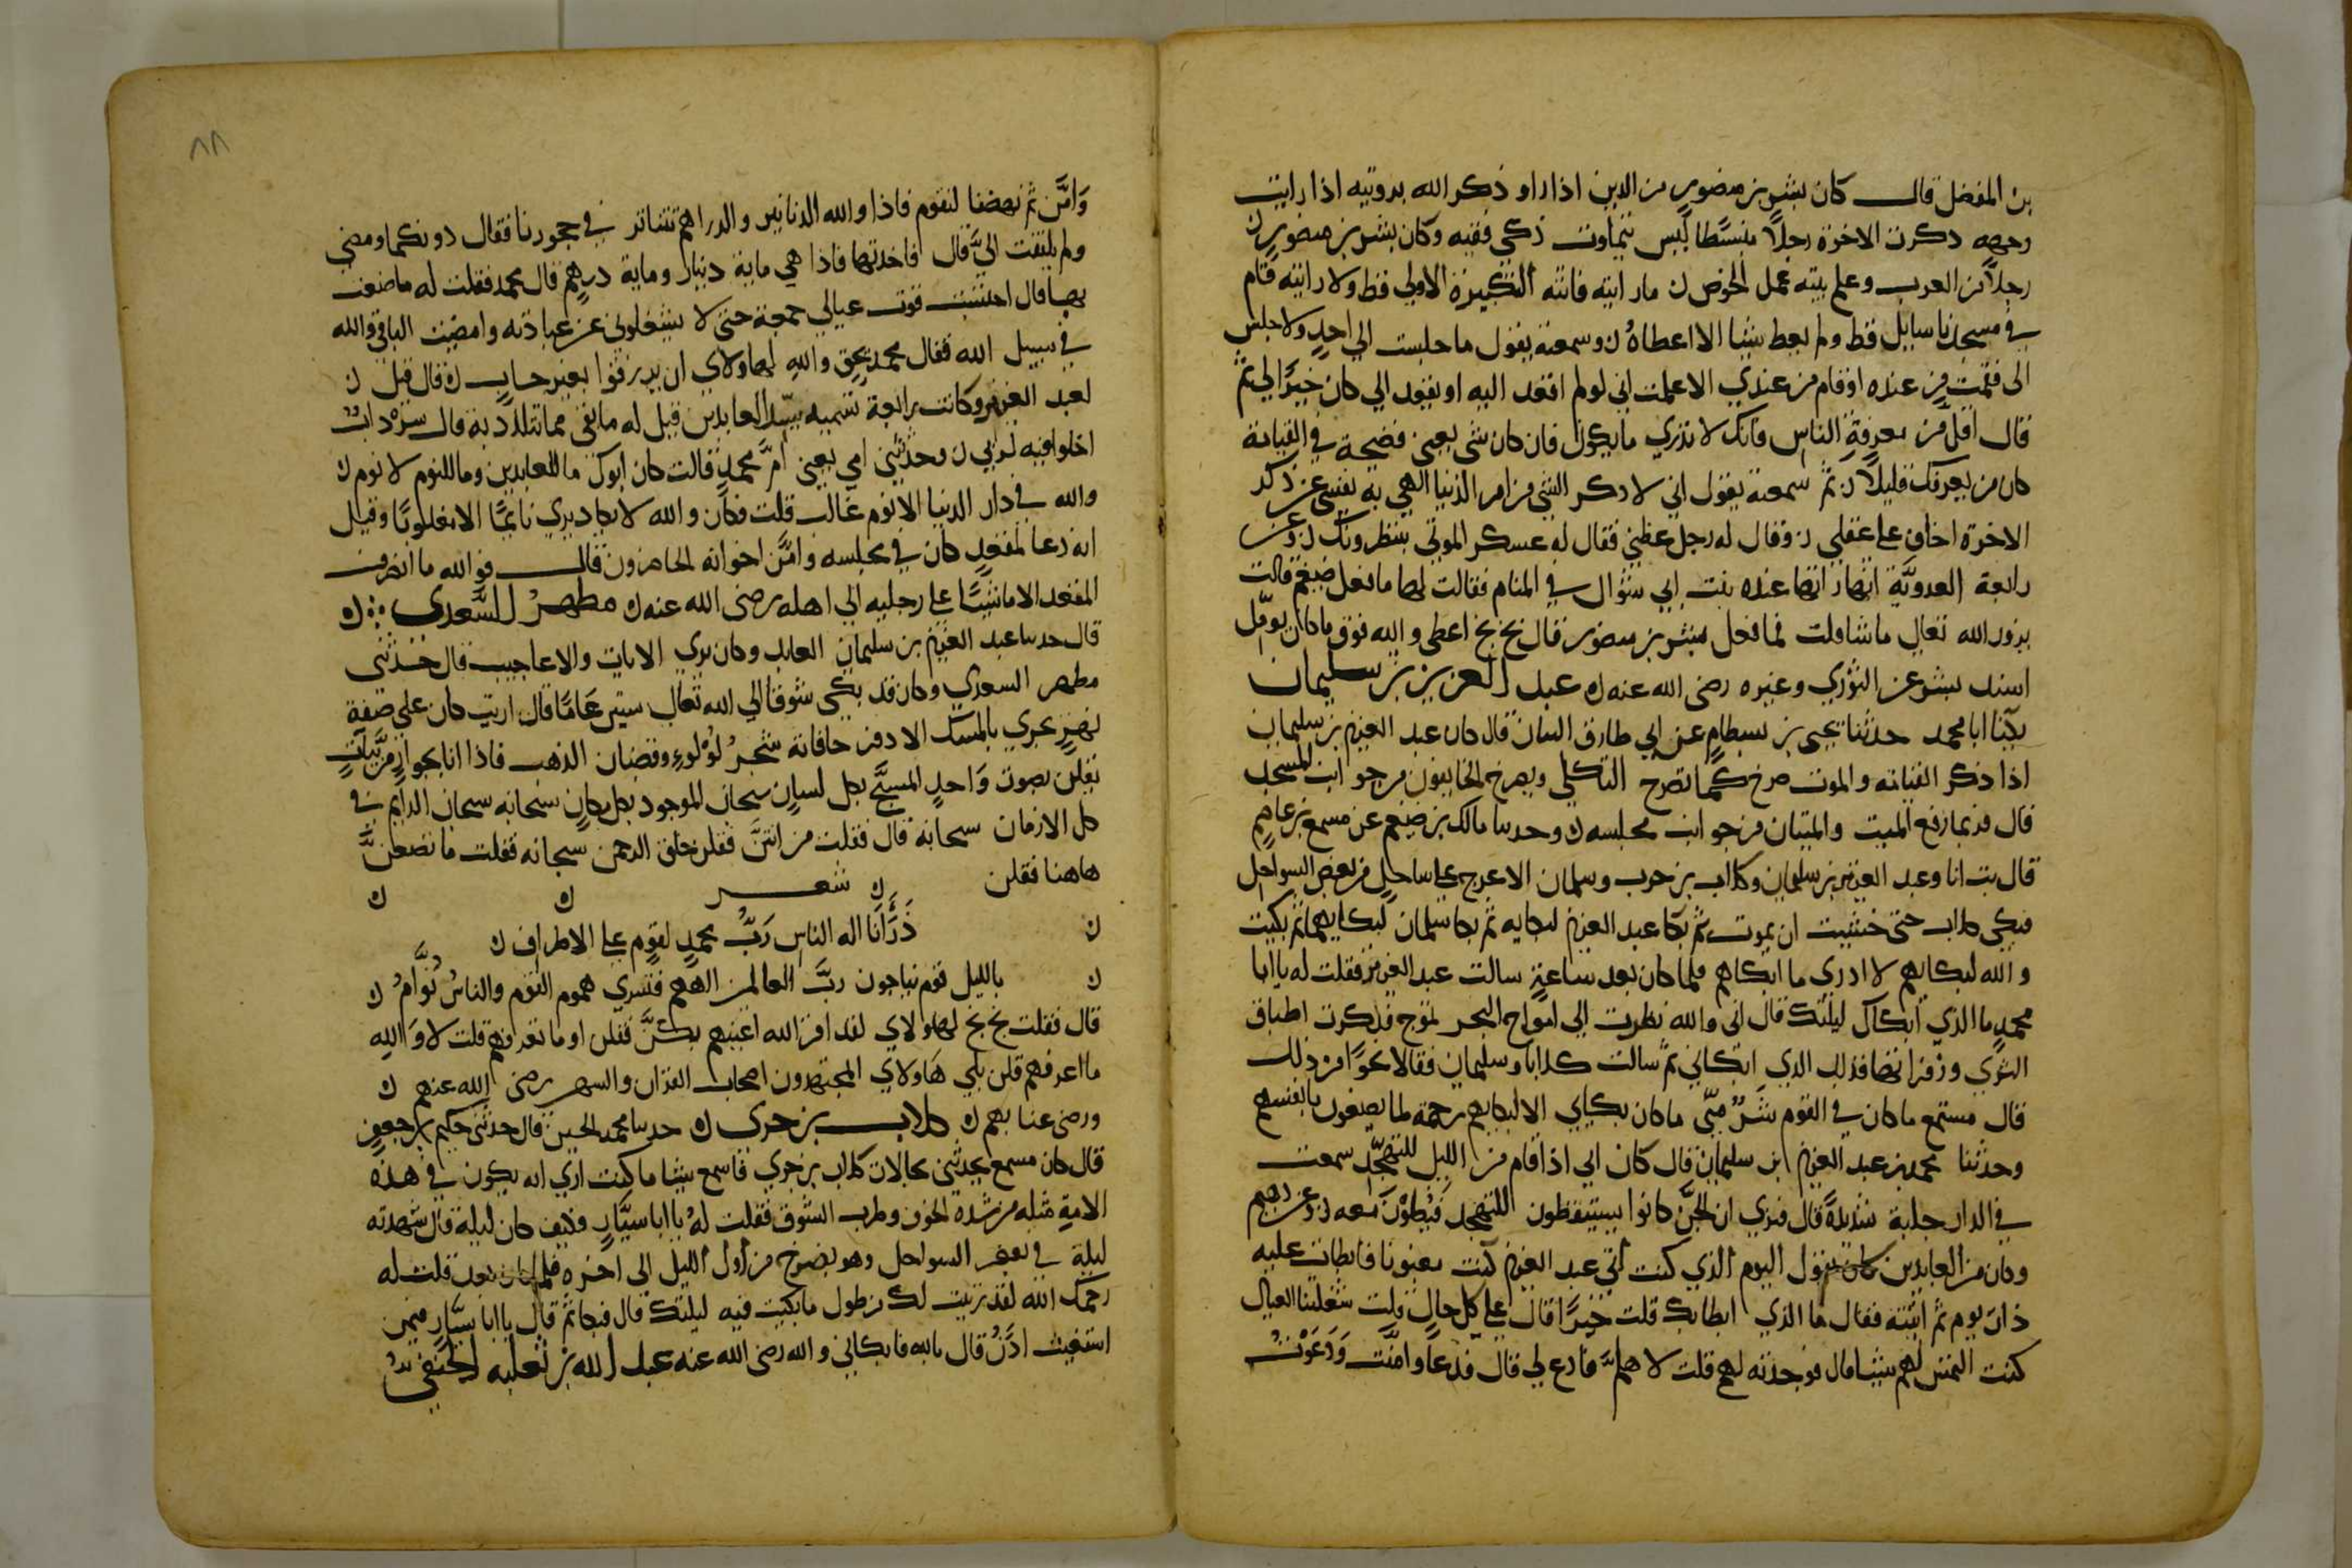 بن المفضل قال كان بشر بن منصور من الذين اذا راو ذكر الله برويته اذا رايت
وجهه ذكرت الاخرة رجلا منبسطا ليس بتماوت ذكي فقيه وكان بشر بن منصور ن
رجلا من العرب وعلم بيته عمل الخوص ن ما رايته فاتته التكبيرة الاولى قط ولا رايته قام
في مسجدنا سايل قط ولم يعط شيئا الا اعطاه ن وسمعته يقول ما جلست الى احد ولا جلس
الى فقمت من عنده او قام من عندي الا علمت اني لو لم اقعد اليه او يقعد الي كان خيرا لي ثم
قال اقل من معرفة الناس فانك لا تدري ما يكون فان كان شى يعني فضيحة في القيامة
كان من يعرفك قليلا ن ثم سمعته يقول اني لا ذكر الشي من امر الدنيا الهي به نفسي عن ذكر
الاخرة اخاف على عقلي ن وقال له رجل عظني فقال له عسكر الموتى ينتظرونك ن وعن
رابعة العدوية انها راتها عنده بنت ابي سوال في المنام فقالت لها ما فعل ضيغم قالت
يزور الله تعالى ما شا قلت فما فعل بشر بن منصور قال بخ بخ اعطي والله فوق ما كان يومل
اسند بشر عن الثوري وغيره رضى الله عنه ن عبد العزيز بن سليمان
يكنا ابا محمد حدثنا يحيى بن بسطام عن ابي طارق التبان قال كان عبد العزيز بن سليمان
اذا ذكر القيامه والموت صرخ كما تصرخ الثكلى ويصرخ الخايفون من جوانب المسجد
قال فربما رفع الميت والميتان من جوانب مجلسه ن وحدثنا مالك بن ضيغم عن مسمع بن عاصم
قال بت انا وعبد العزيز بن سليمان وكلاب بن جري وسلمان الاعرج على ساحل من بعض السواحل
فبكى كلاب حتى خشيت ان يموت ثم بكا عبد العزيز لبكايه ثم بكا سلمان لبكايهما ثم بكيت
و الله لبكايهم لا ادري ما ابكاهم فلما كان بعد ساعة سالت عبد العزيز فقلت له يا ابا
محمد ما الذي ابكاك ليلتك قال اني والله نظرت الى امواج البحر تموج فذكرت اطباق
النيران وزفراتها فذلك الذي ابكاني ثم سالت كلابا وسليمان فقالا نحوا من ذلك
قال مسمع ما كان في القوم شر مني ما كان بكايي الا لبكايهم رحمة لما يصنعون بانفسهم
وحدثنا محمد بن عبد العزيز ابن سليمان قال كان ابي اذا قام من الليل للتهجد سمعت
في الدار جلبة شديدة قال فنرى ان الجن كانوا يستيقظون للتهجد فيصلون معه ن وعن دهثم
وكان من العابدين كان يقول اليوم الذي كنت اتي عبد العزيز كنت مغبونا فابطات عليه
ذات يوم ثم اتيته فقال ما الذي ابطا بك قلت خيرا قال على كل حال قلت شغلتنا العيال
كنت التمس لهم شيئا قال فوجدته لهم قلت لا هلم فادع لي قال فدعا وامنت ودعوت
٨٨
وامن ثم نهضنا لنقوم فاذا والله الدنانير والدراهم تتناثر في حجورنا فقال دونكما ومضى
ولم يلتفت الي قال فاخذتها فاذا هي ماية دينار وماية درهم قال محمد فقلت له ما صنعت
بها قال احتسبت قوت عيالي جمعة حتى لا يشغلوني عن عبادته وامضيت الباقي والله
في سبيل الله فقال محمد يحق والله لهاولاي ان يرزقوا بغير حساب ن قال قيل ن
لعبد العزيز وكانت رابعة تسميه سيد العابدين قيل له ما بقي مما تتلذذ به قال سرداب
اخلوا فيه لربي ن وحدثتني امي يعني ام محمد قالت كان ابوك ما للعابدين وما للنوم لا نوم ن
والله في دار الدنيا الا نوم غالب قلت فكان والله لا يكاد يرى نايما الا مغلوبا وقيل
انه دعا لمقعد كان في مجلسه وامن اخوانه الحاضرون قال فوالله ما انصرف
المقعد الا ماشيا على رجليه الى اهله رضى الله عنه ن مطهر السعدي ن
قال حدثنا عبد العزيز بن سليمان العابد وكان يرى الايات والاعاجيب قال حدثني
مطهر السعدي وكان قد بكى شوقا الى الله تعالى ستين عاما قال اريت كان على ضفة
نهر يجري بالمسك الاذفر حافاته شجر لولو وقضبان الذهب فاذا انا بجوار مزينات
يقلن بصوت واحد المسبح بكل لسان سبحان الموجود بكل مكان سبحانه سبحان الدايم في
كل الازمان سبحانه قال فقلت من انتن فقلن خلق الرحمن سبحانه فقلت ما تصنعن
هاهنا فقلن ن شعر ن ن
ن ذرانا اله الناس رب محمد لقوم على الاطراف ن
ن بالليل قوم يناجون رب العالمين الههم فتسري هموم القوم والناس نوام ن
قال فقلت بخ بخ لهاولاي لقد اقر الله اعينهم بكن فقلن او ما تعرفهم قلت لا والله
ما اعرفهم قلن بلى هاولاي المجتهدون اصحاب القران والسهر رضى الله عنهم ن
ورضى عنا بهم ن كلاب بن جري ن حدثنا محمد الحسين قال حدثني حكيم بن جعفر
قال كان مسمع يحدثني بحالات كلاب بن جري فاسمع شيئا ما كنت ارى انه يكون في هذه
الامة مثله من شدة الخوف وطرب الشوق فقلت له يا ابا سيار وكيف كان ليلة قال شهدته
ليلة في بعض السواحل وهو يصرخ من اول الليل الى اخره فلما كان بعد قلت له
رحمك الله لقد رثيت لك من طول ما بكيت فيه ليلتك قال فبكا ثم قال يا ابا سيار فبمن
استغيث اذن قال بالله فابكاني والله رضى الله عنه عبد الله بن ثعلبه الحنفي